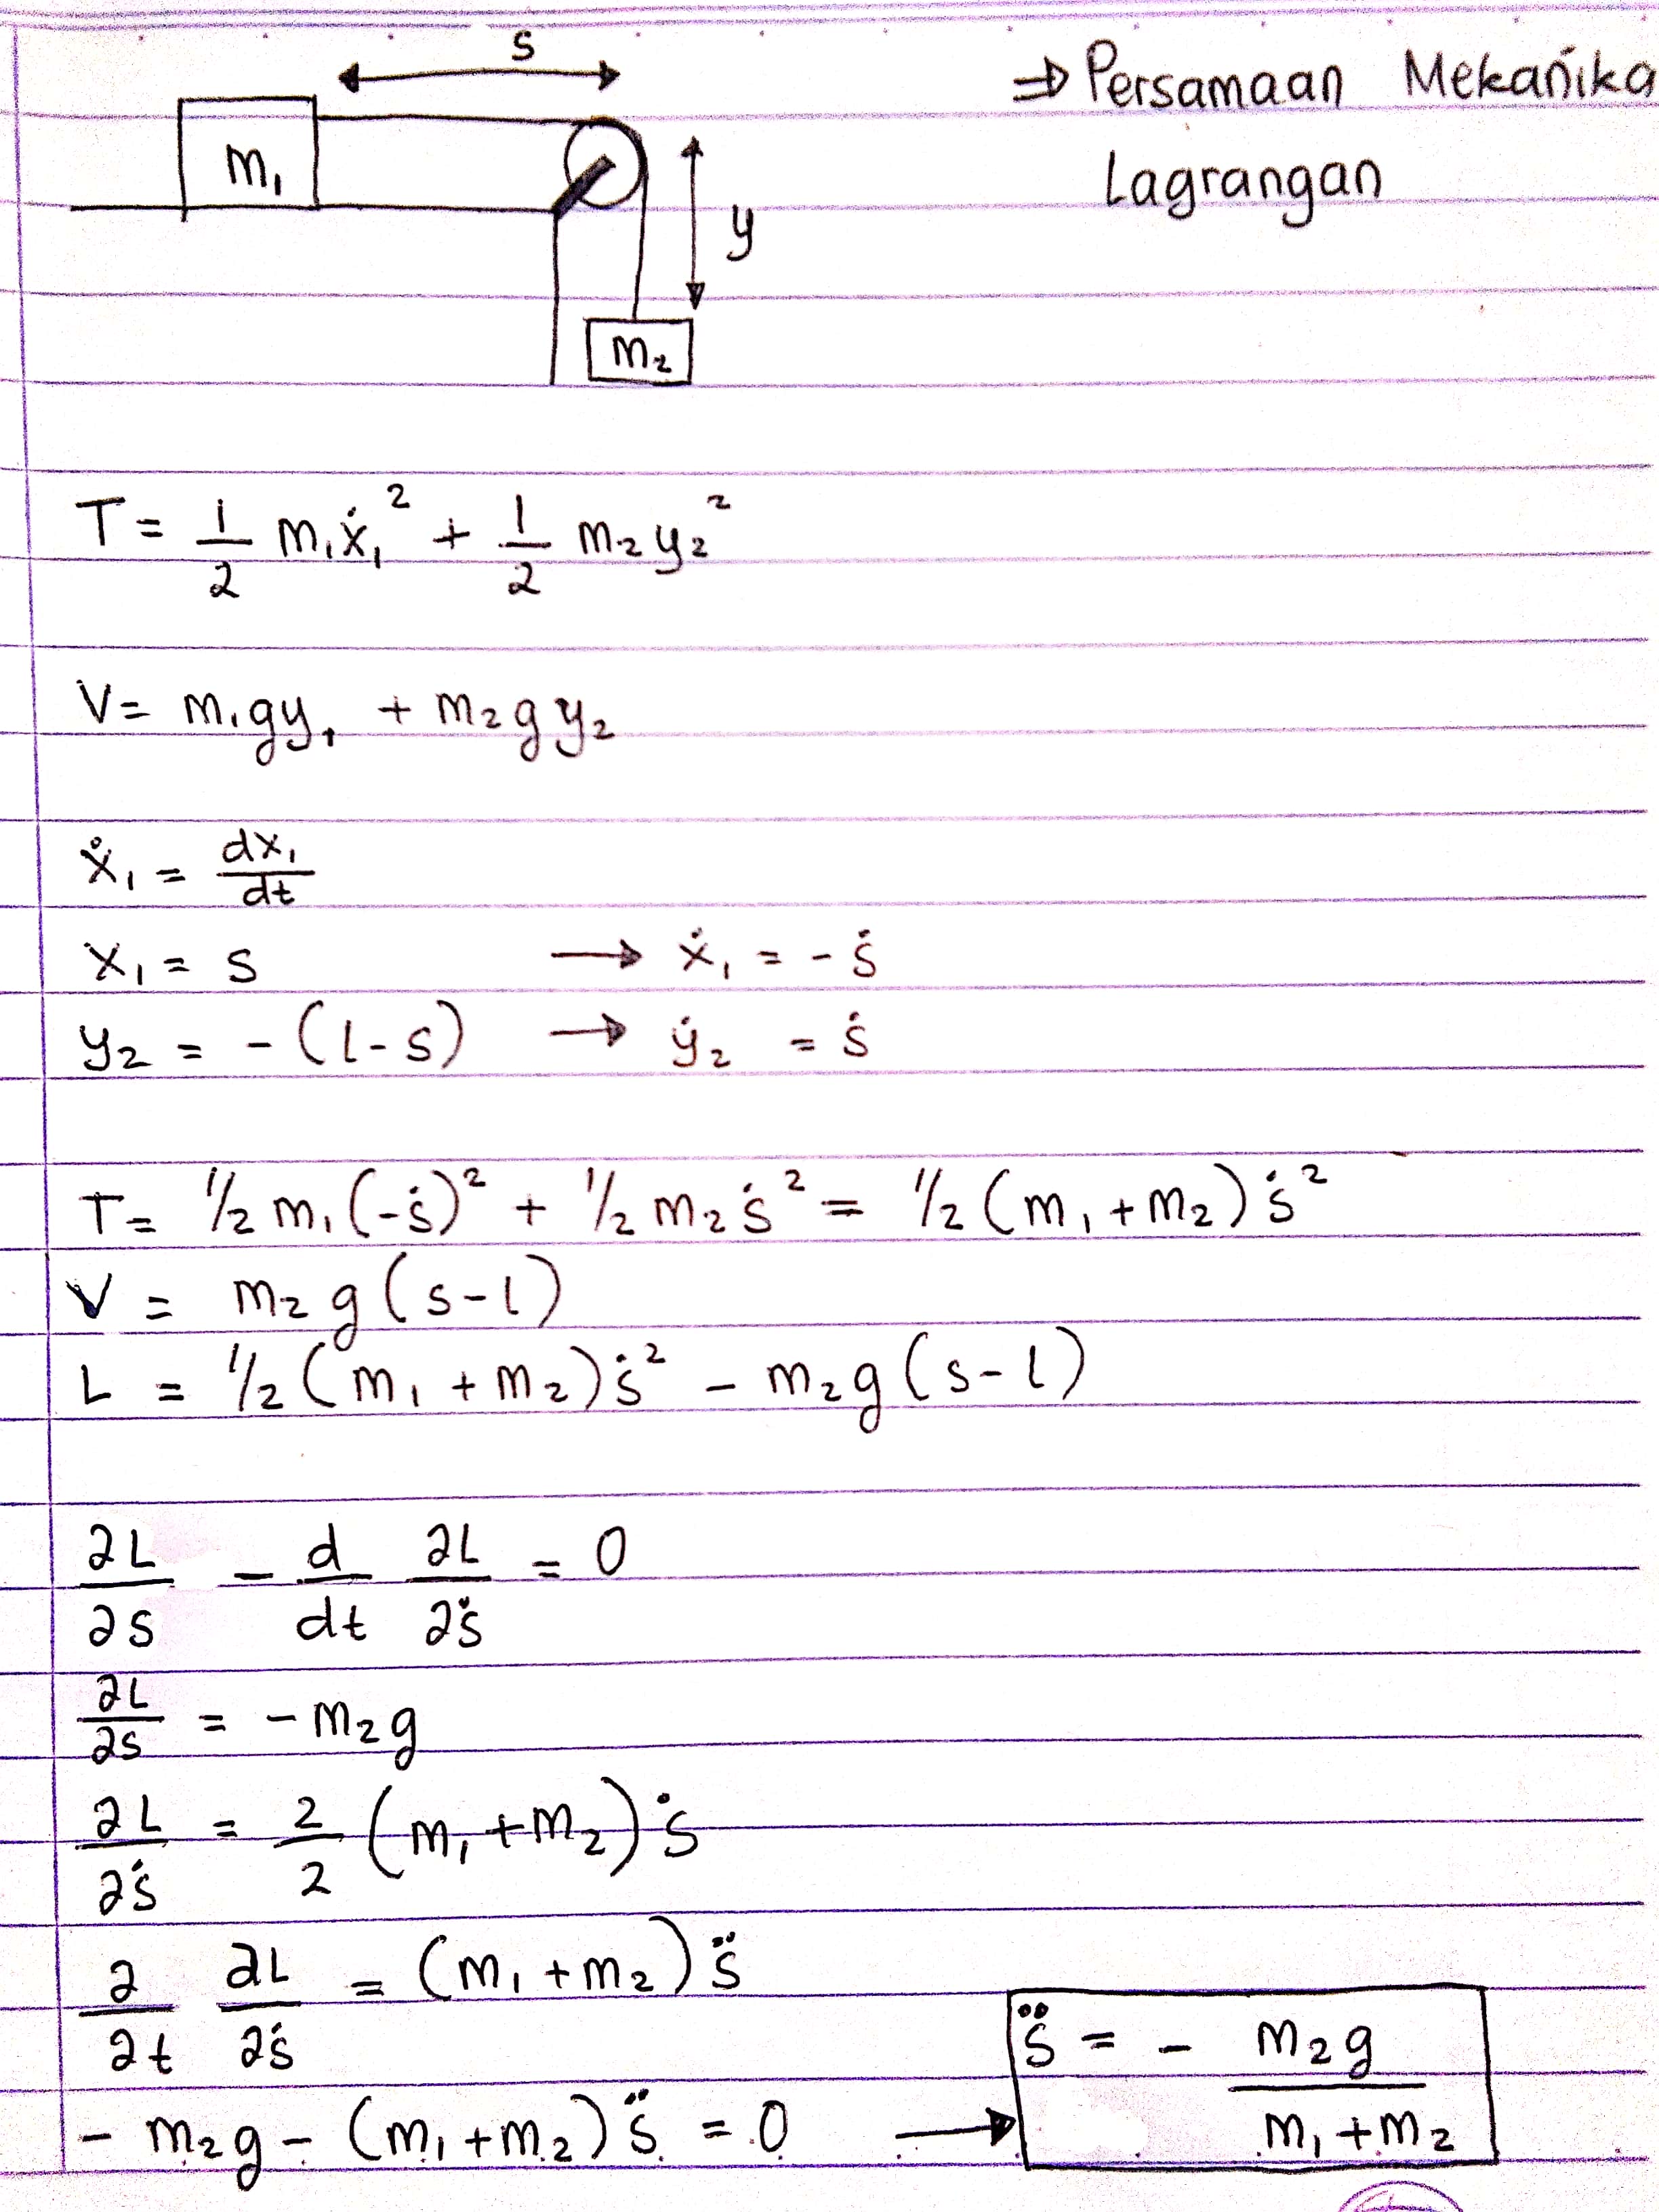 s
⇒ Persamaan Mekanika
Lagrangan
m₁
y
m₂
T = 1/2 m₁ẋ₁² + 1/2 m₂y₂²
V = m₁gy₁ + m₂gy₂
ẋ₁ = dx₁/dt
x₁ = s → ẋ₁ = -ṡ
y₂ = -(l-s) → ẏ₂ = ṡ
T = 1/2 m₁(-ṡ)² + 1/2 m₂ṡ² = 1/2 (m₁+m₂)ṡ²
V = m₂g(s-l)
L = 1/2 (m₁+m₂)ṡ² - m₂g(s-l)
∂L/∂s - d/dt ∂L/∂ṡ = 0
∂L/∂s = -m₂g
∂L/∂ṡ = 2/2 (m₁+m₂)ṡ
∂/∂t ∂L/∂ṡ = (m₁+m₂)s̈
-m₂g - (m₁+m₂)s̈ = 0 → s̈ = - m₂g/(m₁+m₂)